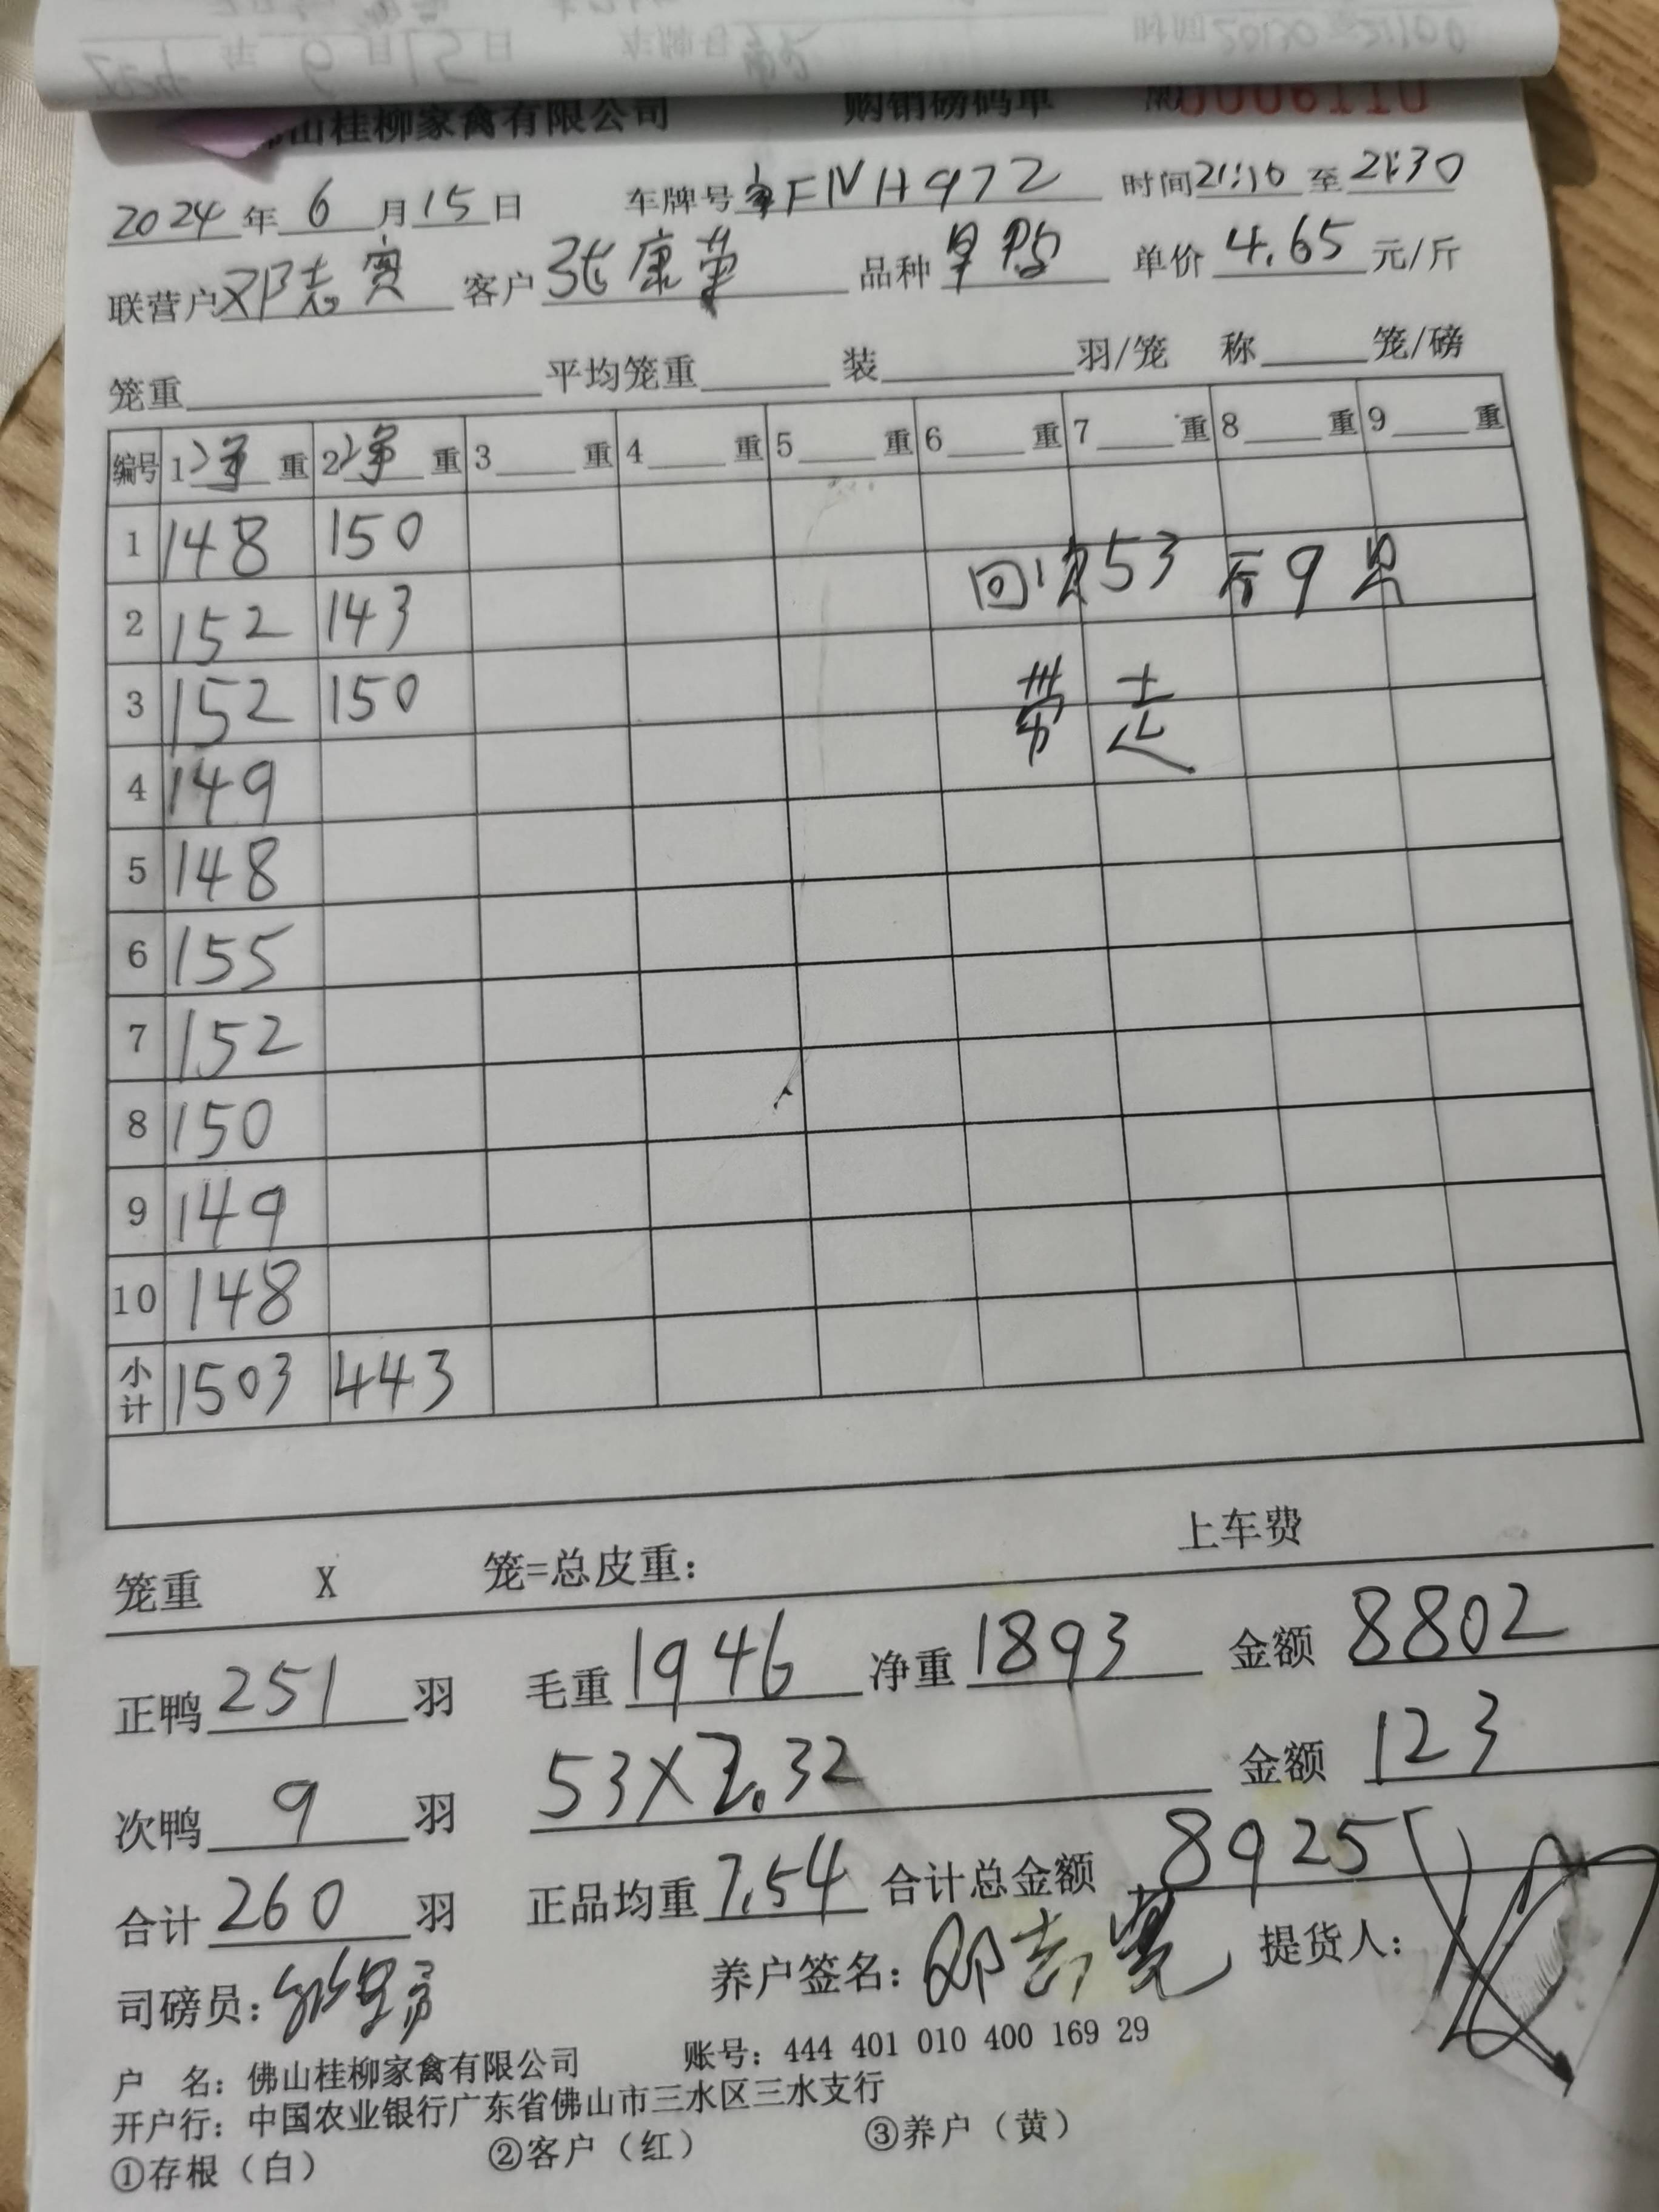 山桂柳家禽有限公司 购销磅码单 №0006110
2024年6月15日 车牌号粤FNH972 时间21:10至21:30
联营户邓志宽 客户张康荣 品种旱鸭 单价4.65元/斤
笼重 平均笼重 装 羽/笼 称 笼/磅
编号 1净重 2净重 3重 4重 5重 6重 7重 8重 9重
1 148 150
回次53斤9只
2 152 143
3 152 150
带走
4 149
5 148
6 155
7 152
8 150
9 149
10 148
小计 1503 443
上车费
笼重 X 笼=总皮重:
正鸭251羽 毛重1946 净重1893 金额8802
次鸭9羽 53X2.32 金额123
合计260羽 正品均重7.54 合计总金额8925
司磅员: 养户签名:邓志宽 提货人:
户 名:佛山桂柳家禽有限公司 账号:444 401 010 400 169 29
开户行:中国农业银行广东省佛山市三水区三水支行
①存根(白) ②客户(红) ③养户(黄)